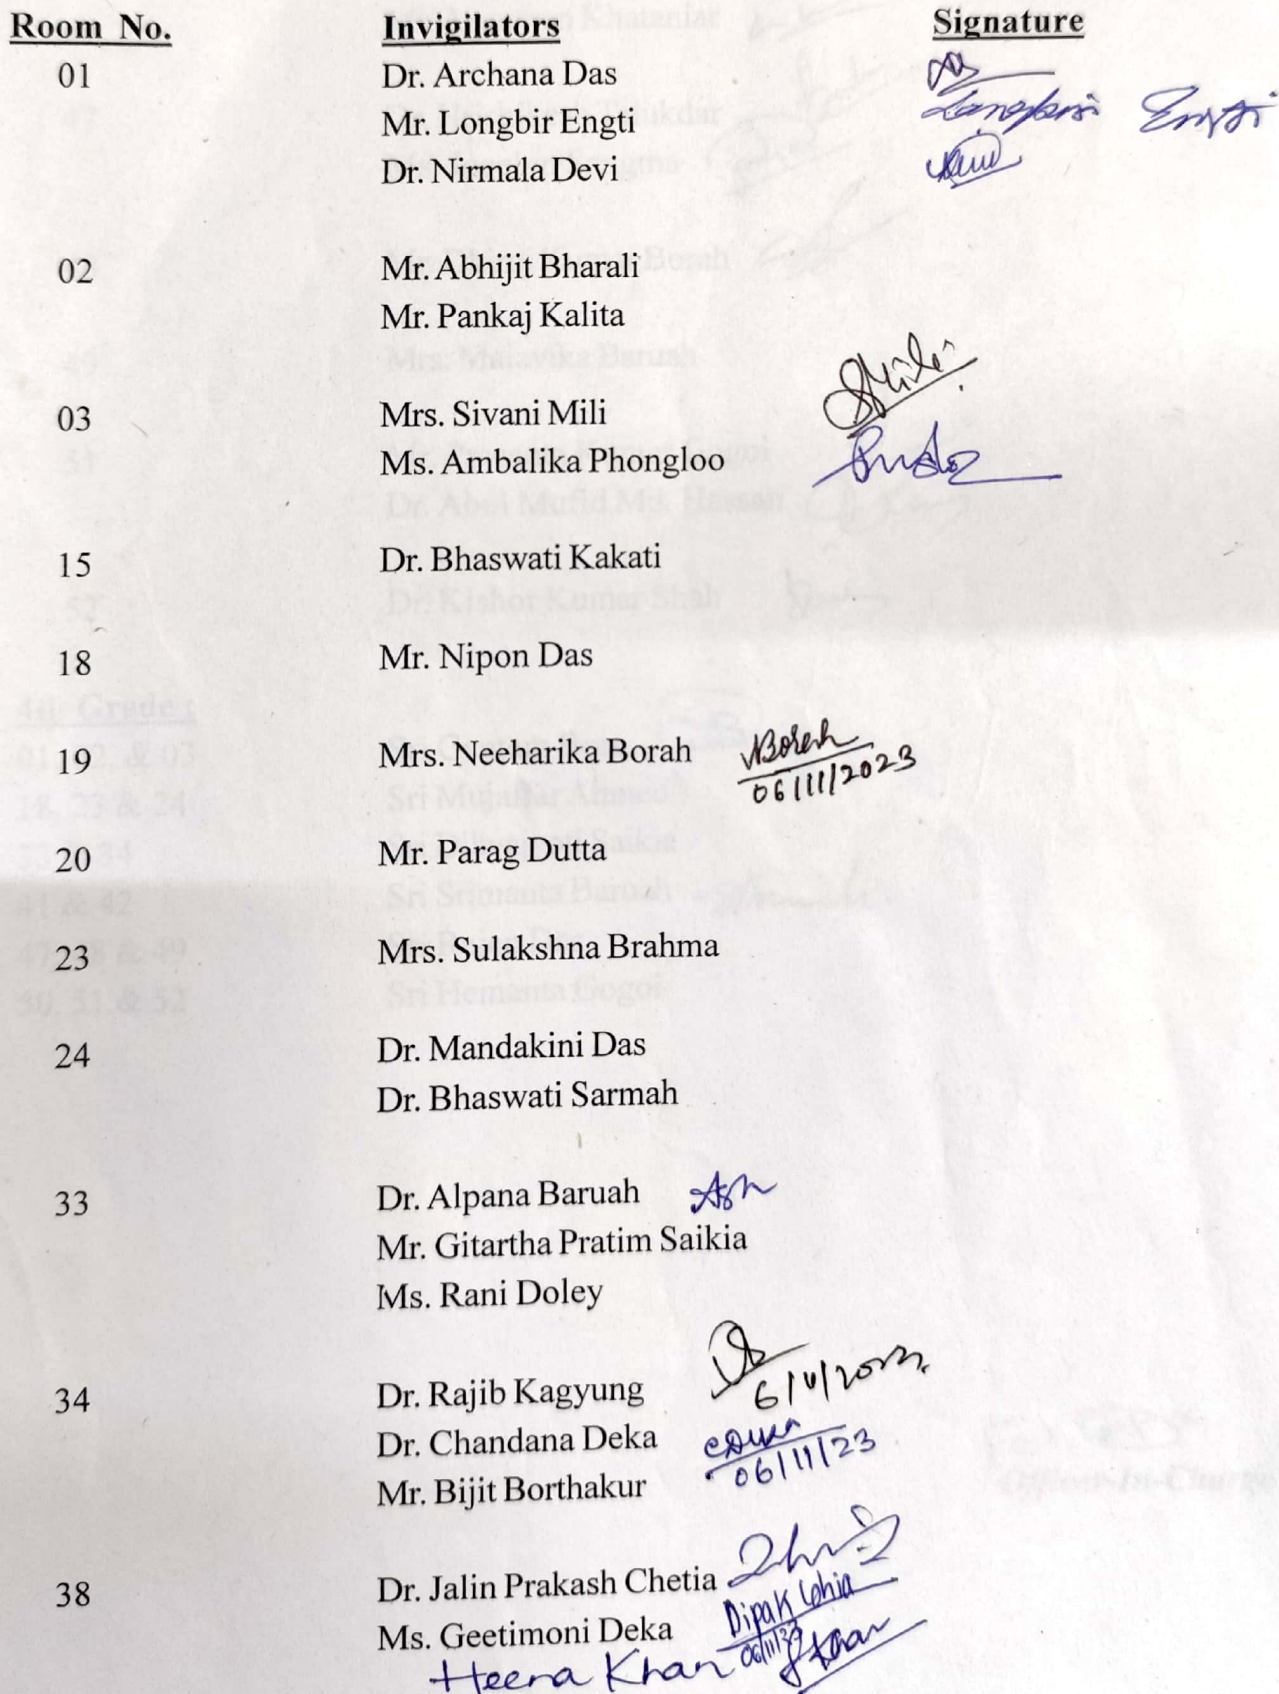 Room No. Invigilators Signature
01 Dr. Archana Das
Mr. Longbir Engti Engti
Dr. Nirmala Devi
02 Mr. Abhijit Bharali
Mr. Pankaj Kalita
03 Mrs. Sivani Mili
Ms. Ambalika Phongloo
15 Dr. Bhaswati Kakati
18 Mr. Nipon Das
19 Mrs. Neeharika Borah NBorah
06/11/2023
20 Mr. Parag Dutta
23 Mrs. Sulakshna Brahma
24 Dr. Mandakini Das
Dr. Bhaswati Sarmah
33 Dr. Alpana Baruah
Mr. Gitartha Pratim Saikia
Ms. Rani Doley
34 Dr. Rajib Kagyung 6/11/2023
Dr. Chandana Deka CDeka
06/11/23
Mr. Bijit Borthakur
38 Dr. Jalin Prakash Chetia
Ms. Geetimoni Deka Dipak
06/11/23
Heena Khan Khan